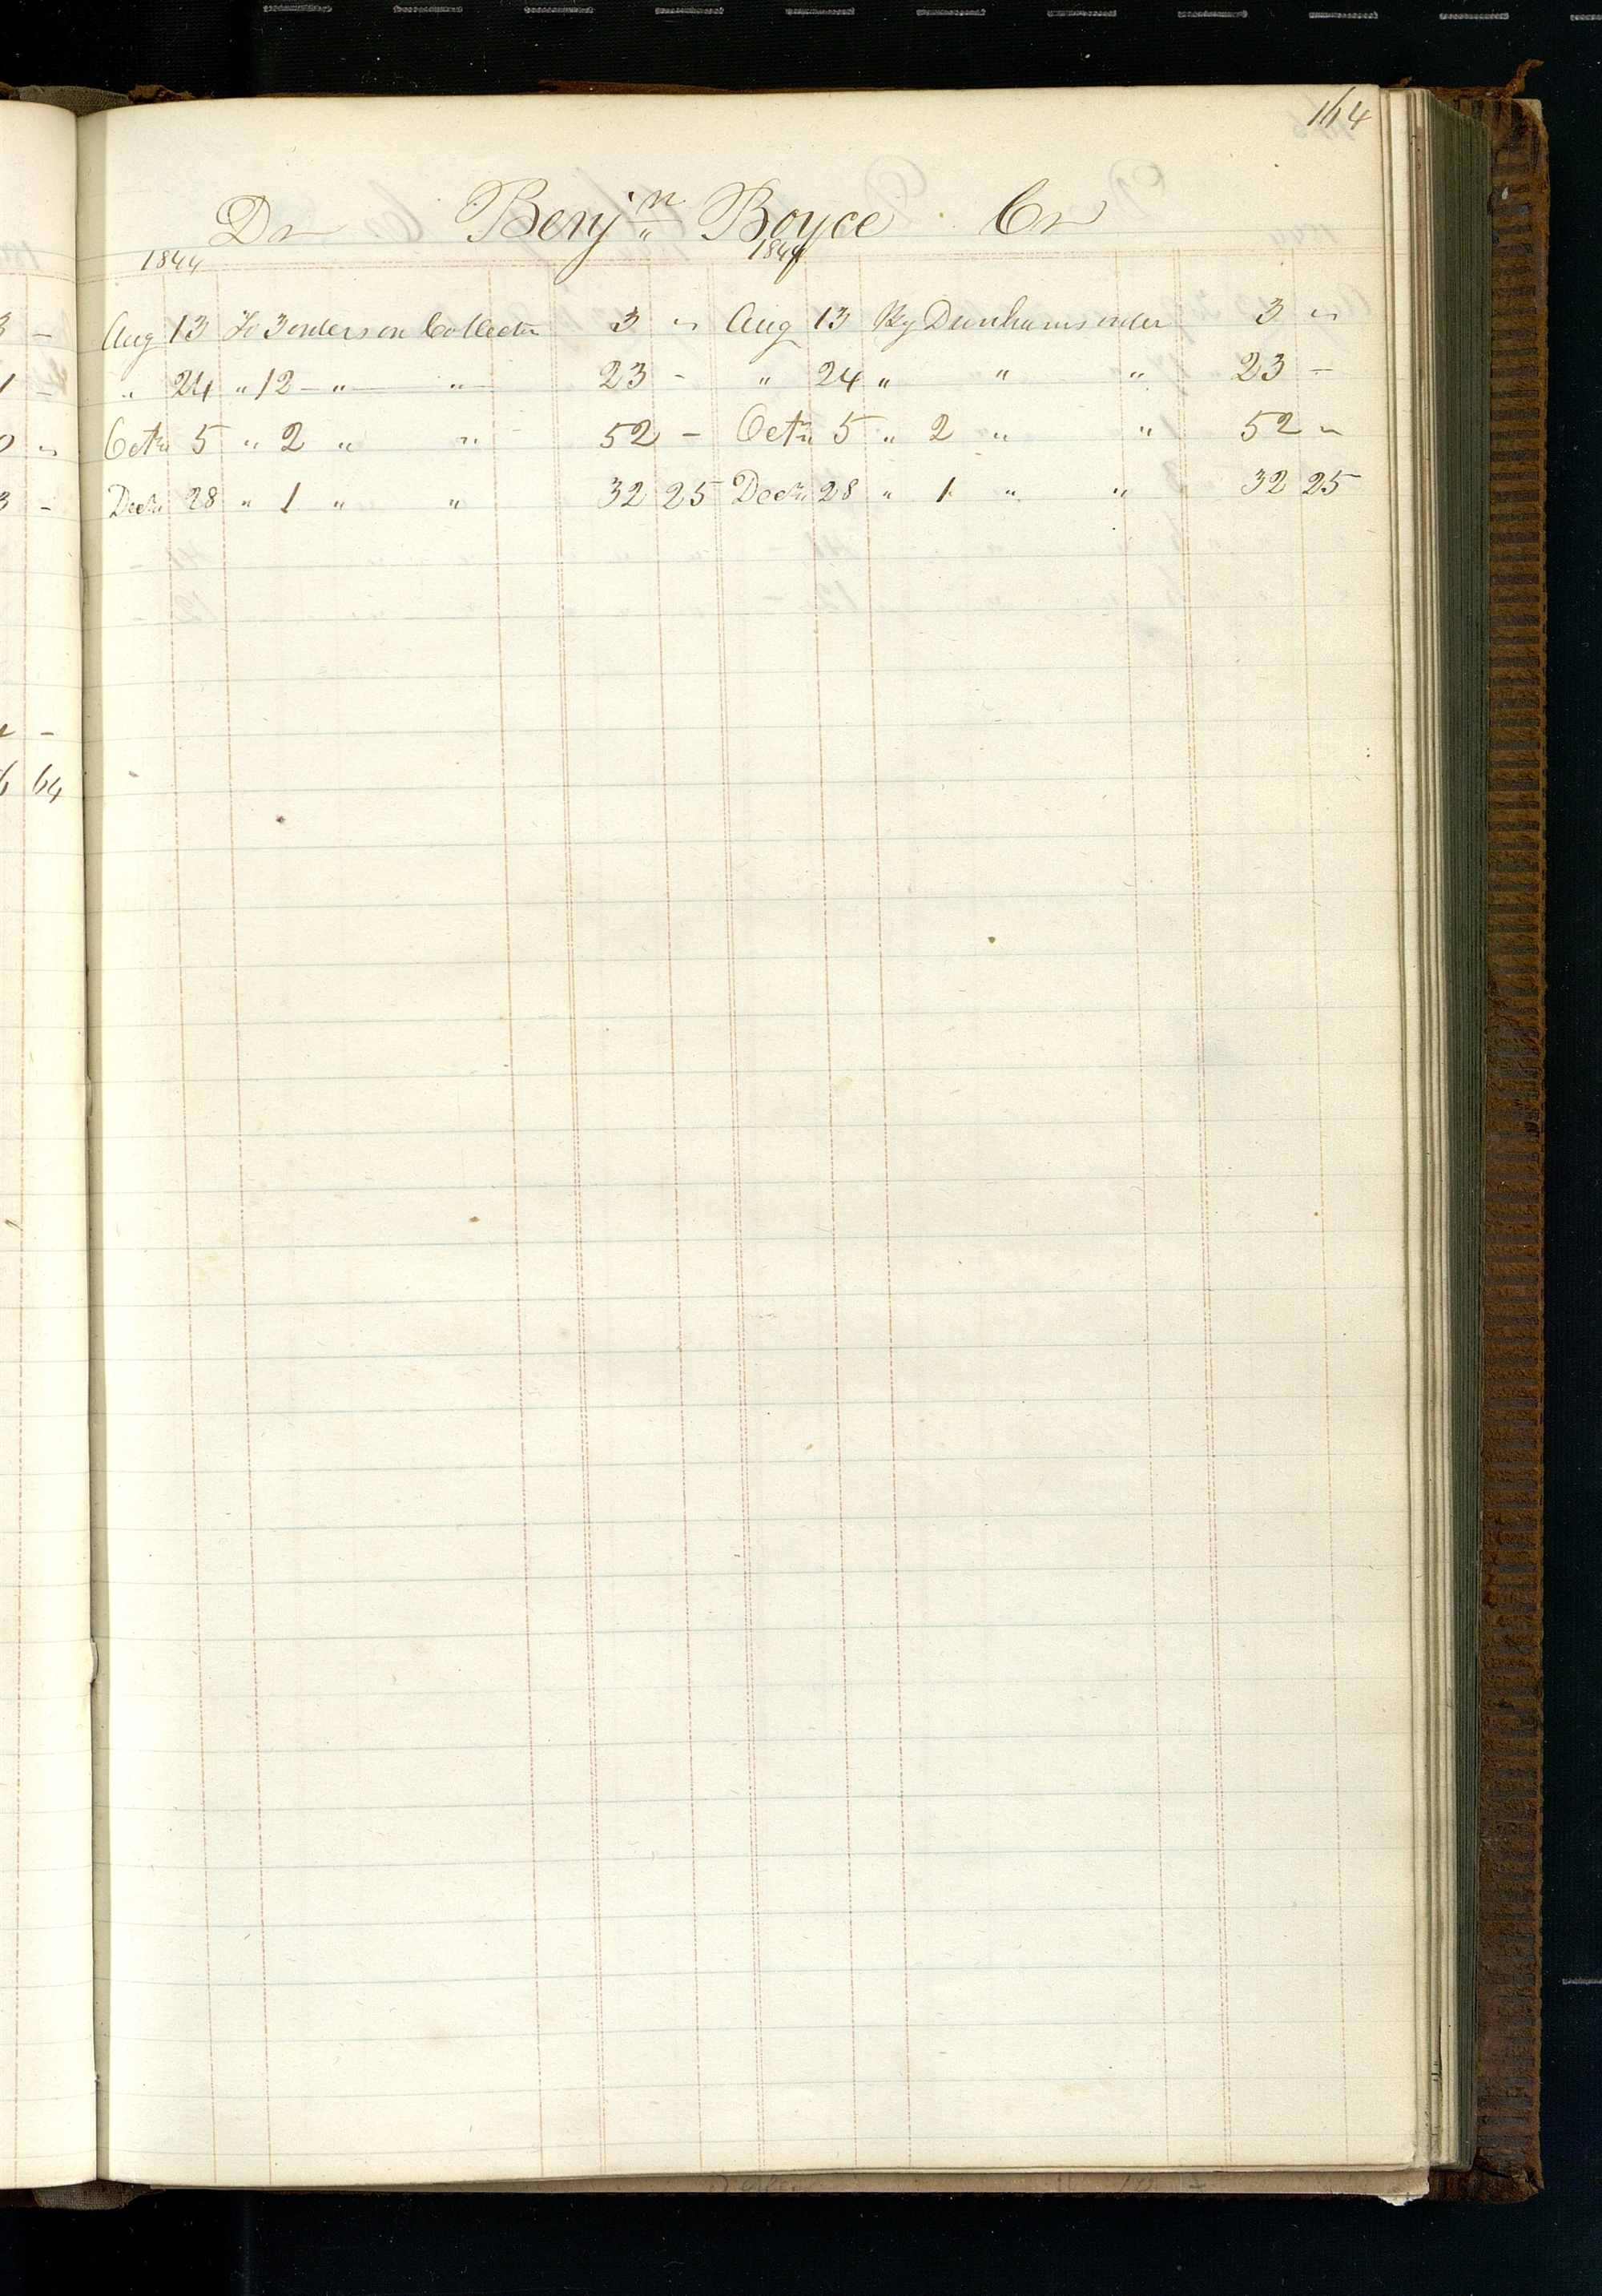 164
Dr Benjn Boyce Cr
1844 1844
Aug 13 To 3 orders on Collector 3 " Aug 13 By Dunhams order 3 "
" 24 " 12 - " " 23 - " 24 " " " 23 -
Octr 5 " 2 " " 52 - Octr 5 " 2 " " 52 "
Decr 28 " 1 " " 32 25 Decr 28 " 1 " " 32 25
64